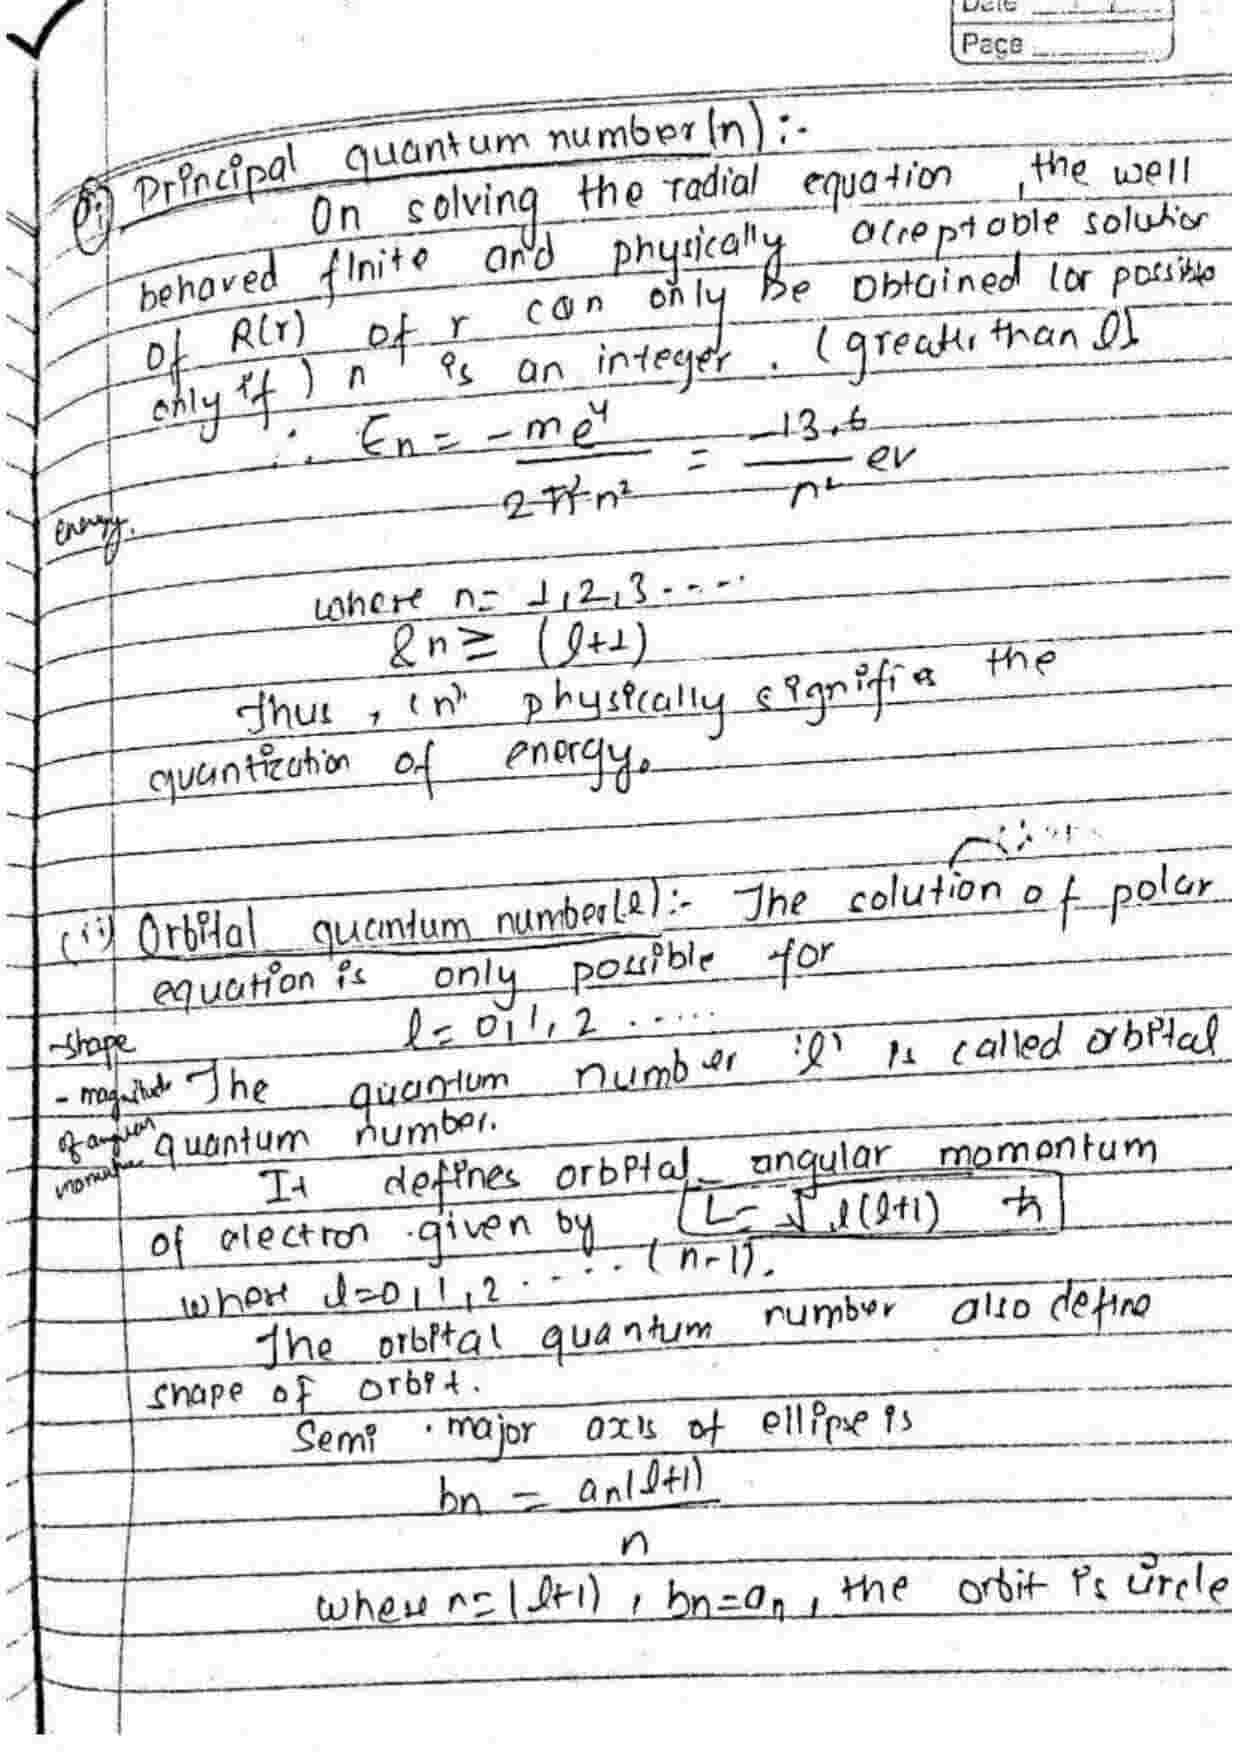 Date
Page
(i) Principal quantum number(n):-
On solving the radial equation, the well
behaved finite and physically acceptable solution
of R(r) of r can only be obtained (or possible
only if) n is an integer. (greater than l)
∴ En = -me⁴ / 2ħ²n² = -13.6 / n² ev
energy.
where n= 1,2,3....
& n ≥ (l+1)
Thus, 'n' physically signifies the
quantization of energy.
(ii) Orbital quantum number(l):- The solution of polar
equation is only possible for
l= 0,1,2 .....
-shape
- magnitude
of angular
momentum
The quantum number 'l' is called orbital
quantum number.
It defines orbital angular momentum
of electron given by L= √l(l+1) ħ
where l=0,1,2.....(n-1).
The orbital quantum number also define
shape of orbit.
Semi-major axis of ellipse is
bn = an(l+1) / n
where n=(l+1), bn=an, the orbit is circle